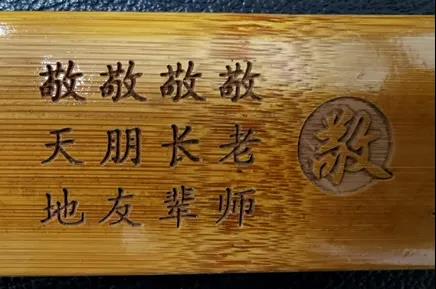 敬
敬老师
敬长辈
敬朋友
敬天地